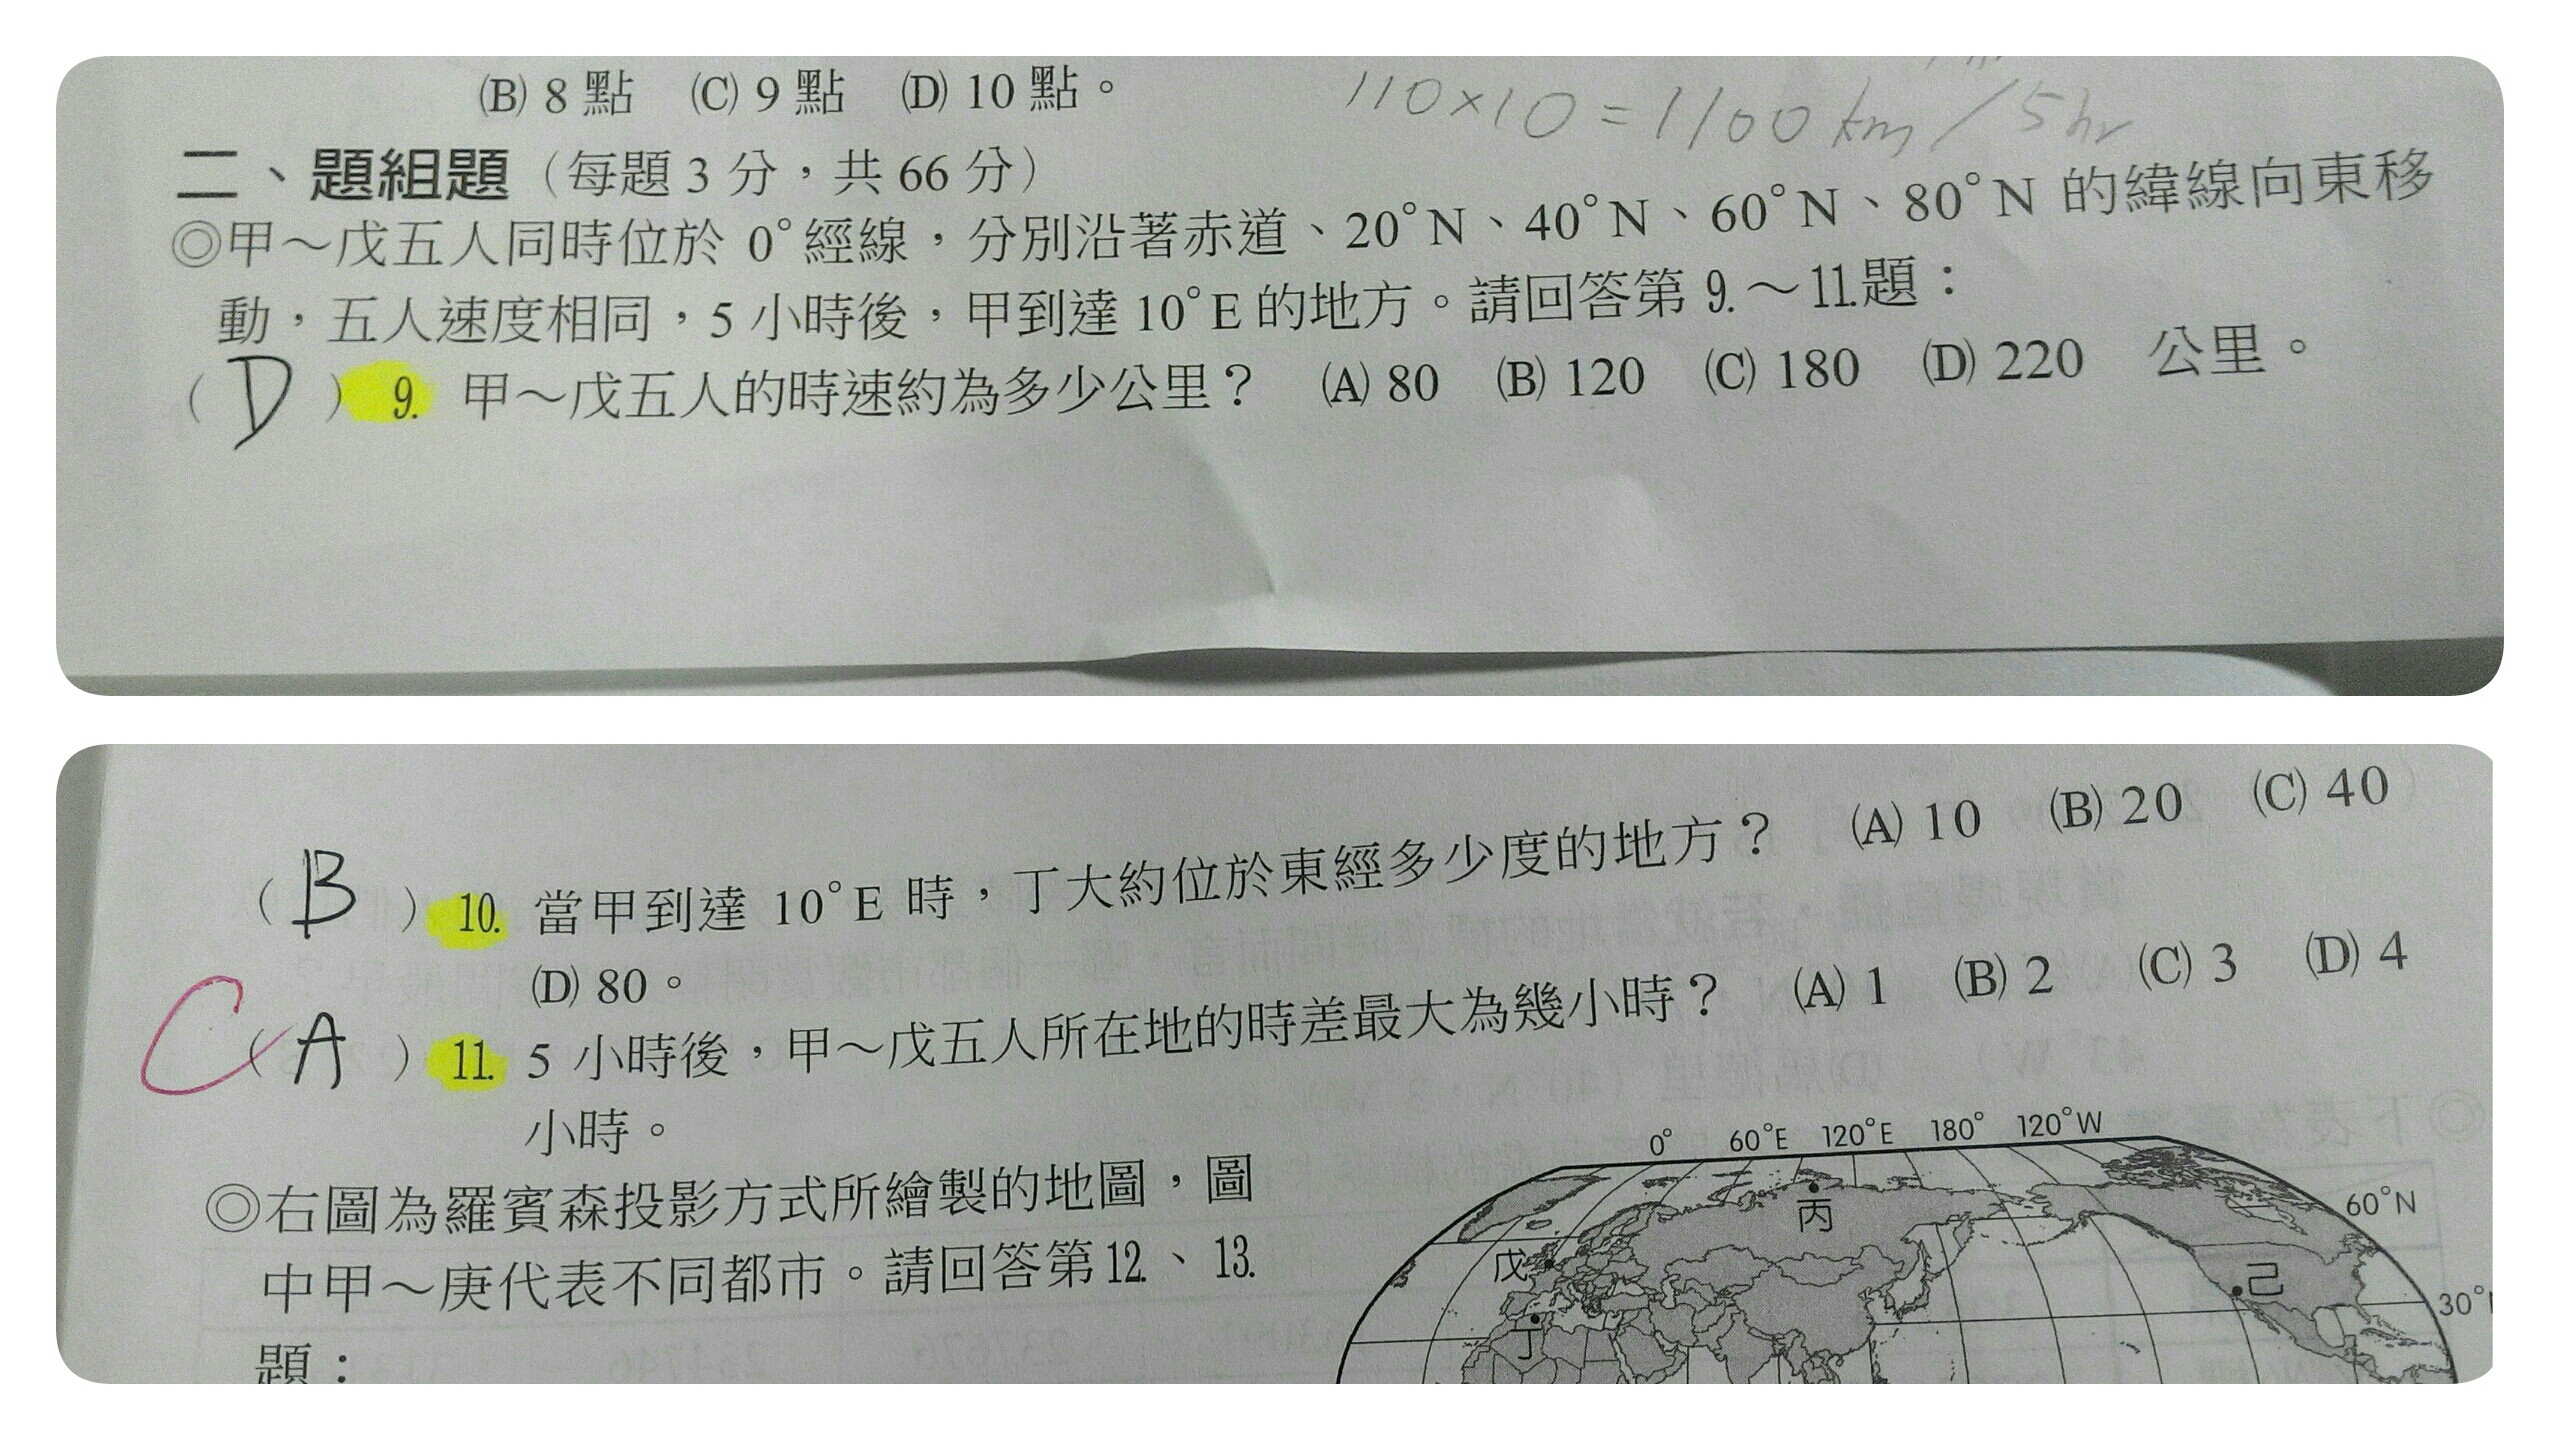 (B) 8 點 (C) 9 點 (D) 10 點。
110×10=1100 km/5hr
二、題組題（每題 3 分，共 66 分）
◎甲～戊五人同時位於 0°經線，分別沿著赤道、20°N、40°N、60°N、80°N 的緯線向東移
動，五人速度相同，5 小時後，甲到達 10°E 的地方。請回答第 9.～11.題：
（D）9. 甲～戊五人的時速約為多少公里？ (A) 80 (B) 120 (C) 180 (D) 220 公里。
（B）10. 當甲到達 10°E 時，丁大約位於東經多少度的地方？ (A) 10 (B) 20 (C) 40
(D) 80。
C（A）11. 5 小時後，甲～戊五人所在地的時差最大為幾小時？ (A) 1 (B) 2 (C) 3 (D) 4
小時。
◎右圖為羅賓森投影方式所繪製的地圖，圖
中甲～庚代表不同都市。請回答第12.、13.
題：
0° 60°E 120°E 180° 120°W
60°N
丙
戊
己
30°
丁